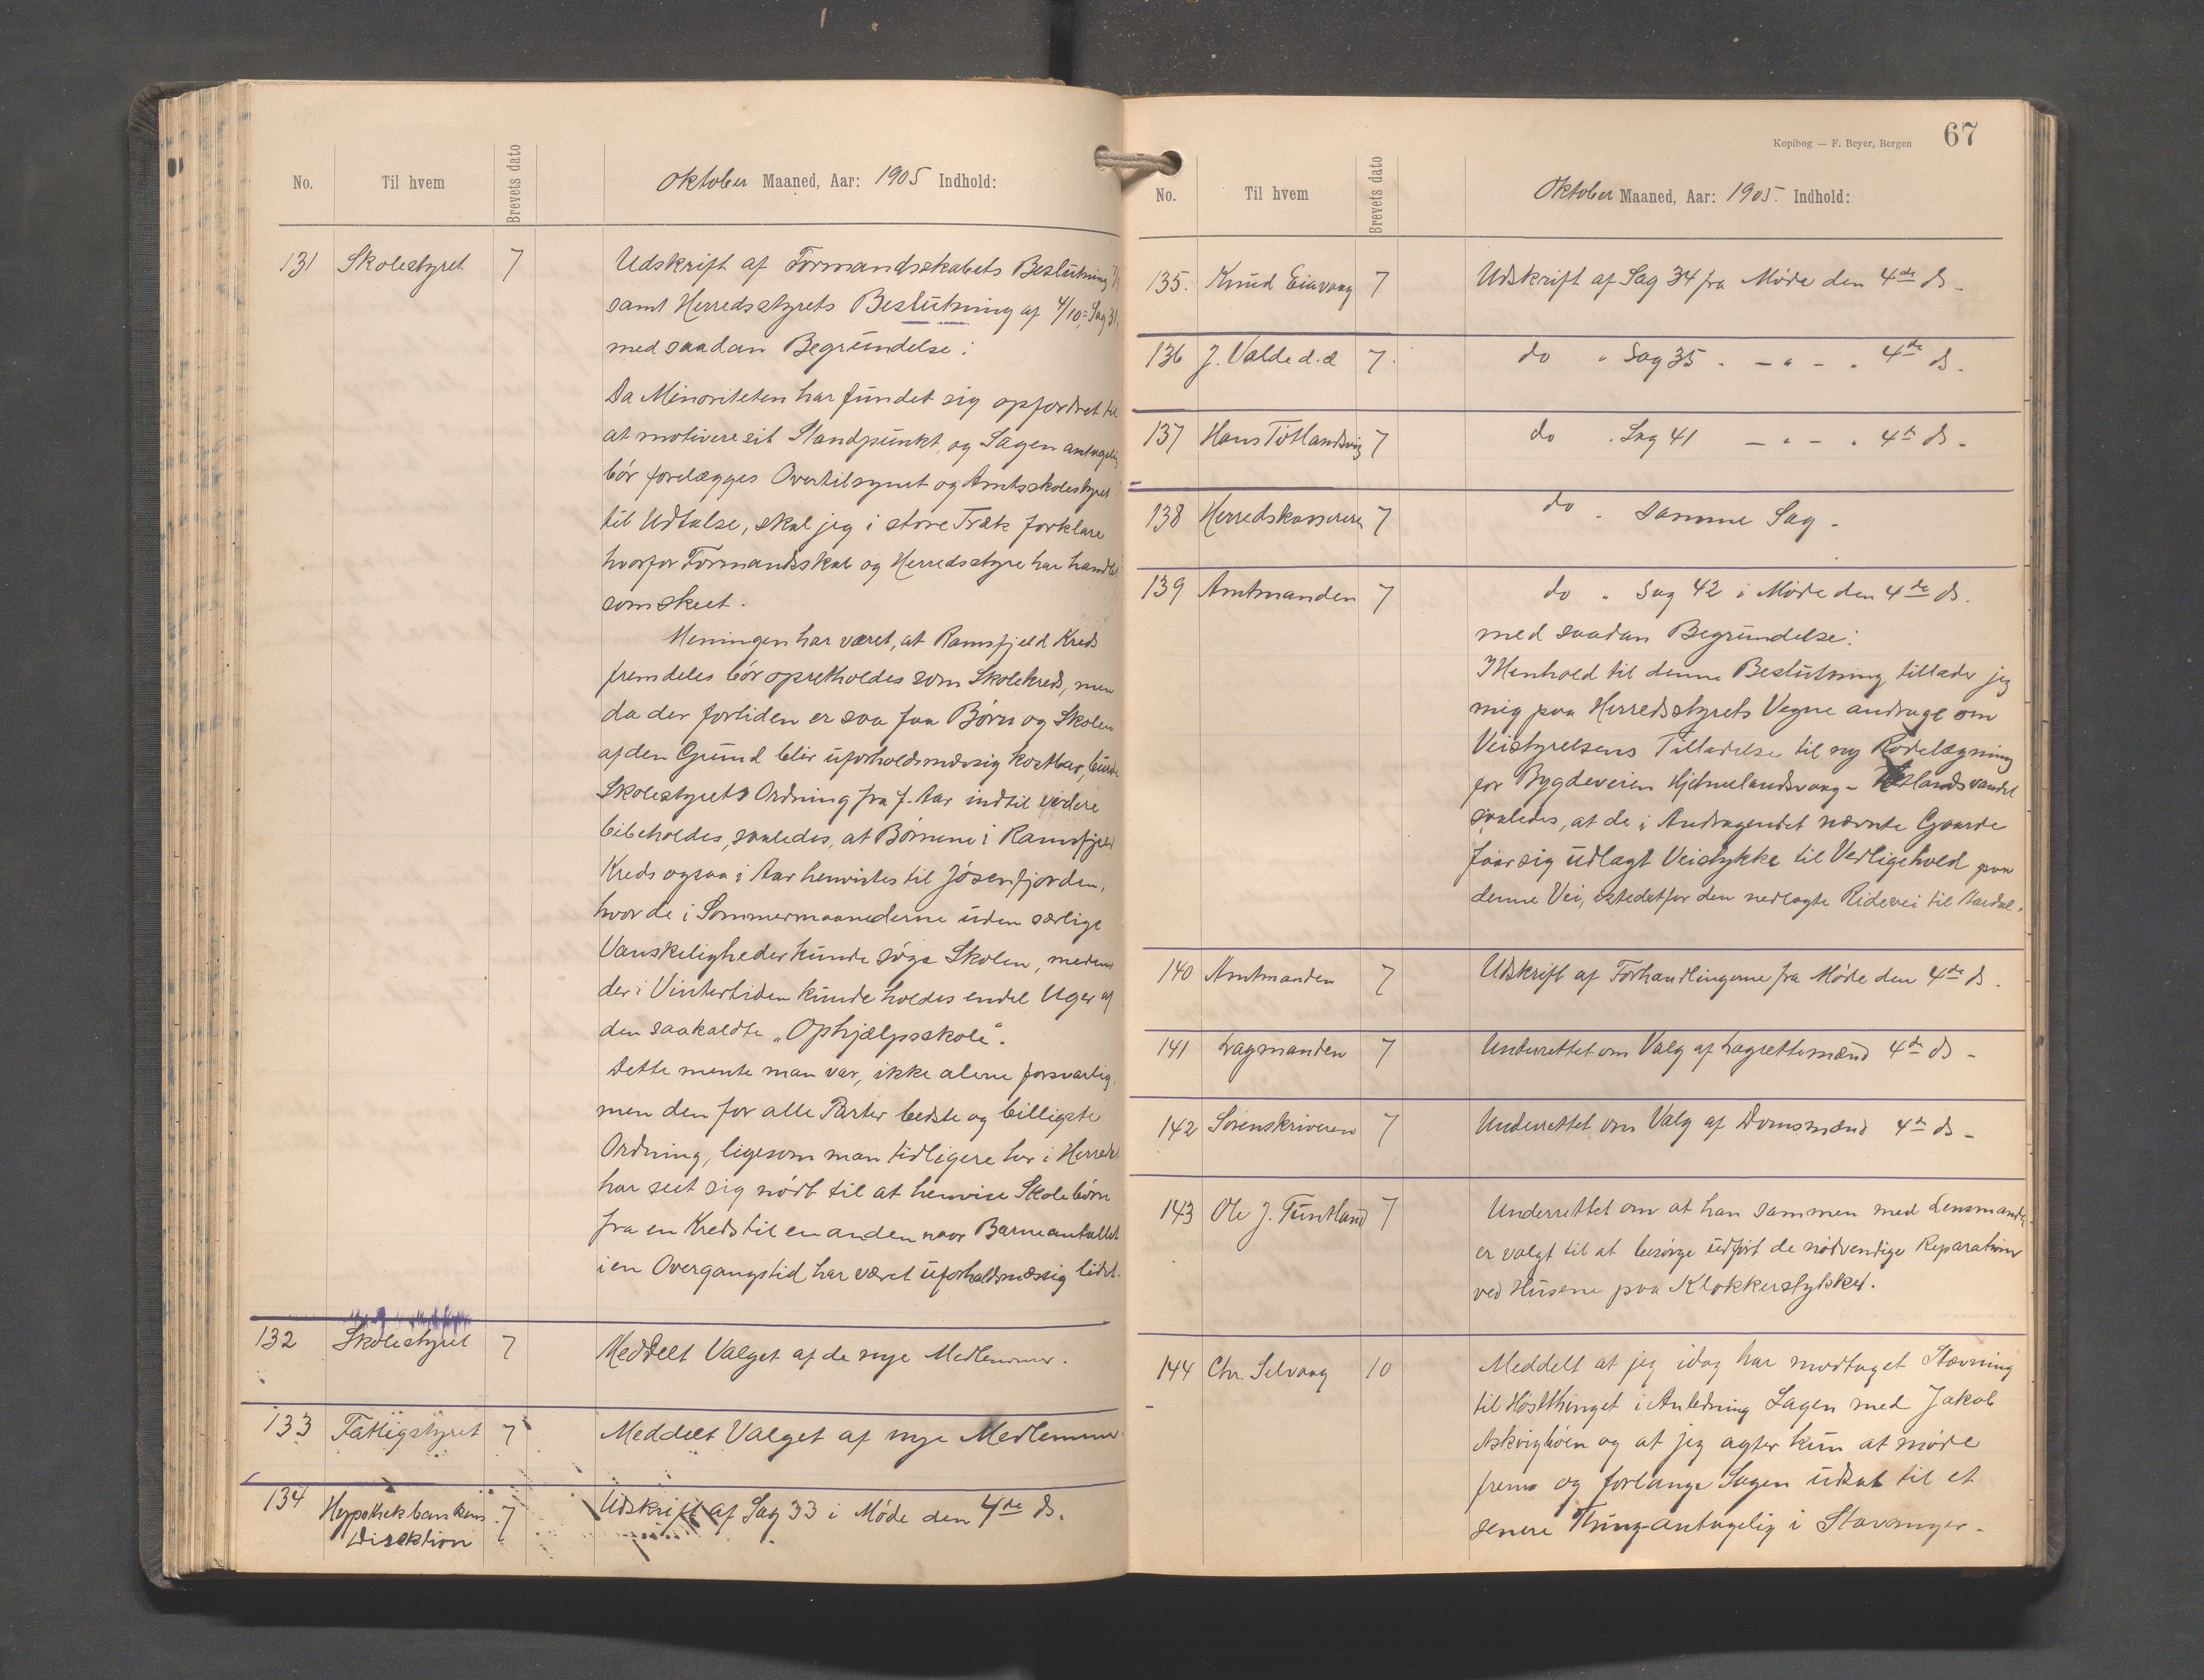 No. Til hvem Brevets dato Oktober Maaned, Aar: 1905 Indhold:
131 Skolestyret 7 Udskrift af Formandsskabets Beslutning
samt Herredsstyrets Beslutning af 4/10, Sag 31,
med saadan Begründelse:
Da Minoriteten har fündet sig opfordret til
at motivere sit Standpünkt, og Sagen antagelig
bör forelægges Overtilsynet og Amtsskolestyret
til Udtalse, skal jeg i store Træk forklare
hvorfor Formandsskab og Herredsstyre har handlet
som skeet.
Meningen har været, at Ramsfjeld Kreds
fremdeles bör opretholdes som Skolekreds, men
da der fortiden er saa faa Börn og Skolen
af den Gründ blir üforholdsmæssig kostbar, bürde
Skolestyrets Ordning fra f. Aar indtil videre
bibeholdes, saaledes, at Börnene i Ramsfjeld
Kreds ogsaa i Aar henvistes til Jösenfjorden,
hvor de i Sommermaanederne üden særlige
Vanskeligheder künde söge Skolen, medens
der i Vintertiden künde holdes endel Uger af
den saakaldte „Ophjælpsskole".
Dette mente man var, ikke alene forsvarlig
men den for alle Parter bedste og billigste
Ordning, ligesom man tidligere her i Herredet
har seet sig nödt til at henvise Skolebörn
fra en Kreds til en anden naar Barneantallet
i en Overgangstid har været üforholdsmæssig lidet.
132 Skolestyret 7 Meddelt Valget af de nye Medlemmer.
133 Fattigstyret 7 Meddelt Valget af nye Medlemmer.
134 Hypothekbankens 7 Udskrift af Sag 33 i Möde den 4de ds.
Direktion
Kopibog — F. Beyer, Bergen 67
No. Til hvem Brevets dato Oktober Maaned, Aar: 1905. Indhold:
135. Knud Eiavaag 7 Udskrift af Sag 34 fra Möde den 4de ds -
136 J. Valde d.æ 7. do " Sag 35 . - " - . 4de ds.
137 Hans Tøtlandsvig 7 do . Sag 41 - " - . 4de ds -
138 Herredskassereren 7 do . samme Sag -
139 Amtmanden 7 do " Sag 42 i Möde den 4de ds.
med saadan Begründelse:
I Henhold til denne Beslütning tillader jeg
mig paa Herredsstyrets Vegne andrage om
Veistyrelsens Tilladelse til ny Rodelægning
for Bygdeveien Hjelmelandsvaag - Tøtlandsvandet
saaledes, at de i Andragendet nævnte Gaarde
faar sig üdlagt Veistykke til Vedligehold paa
denne Vei, istedetfor den nedlagte Ridevei til Aardal.
140 Amtmanden 7 Udskrift af Forhandlingerne fra Möde den 4de ds.
141 Lagmanden 7 Underrettet om Valg af Lagrettemænd 4de ds -
142 Sorenskriveren 7 Underrettet om Valg af Domsmænd 4de ds -
143 Ole J. Tüntland 7 Underrettet om at han sammen med Lensmanden
er valgt til at besörge üdfört de nödvendige Reparationer
ved Hüsene paa Klokkerstykket.
144 Chr. Selvaag 10 Meddelt at jeg idag har modtaget Stævning
til Hösttinget i Anledning Sagen med Jakob
Askvighöien og at jeg agter kün at möde
frem og forlange Sagen üdsat til et
senere Thing - antagelig i Stavanger -